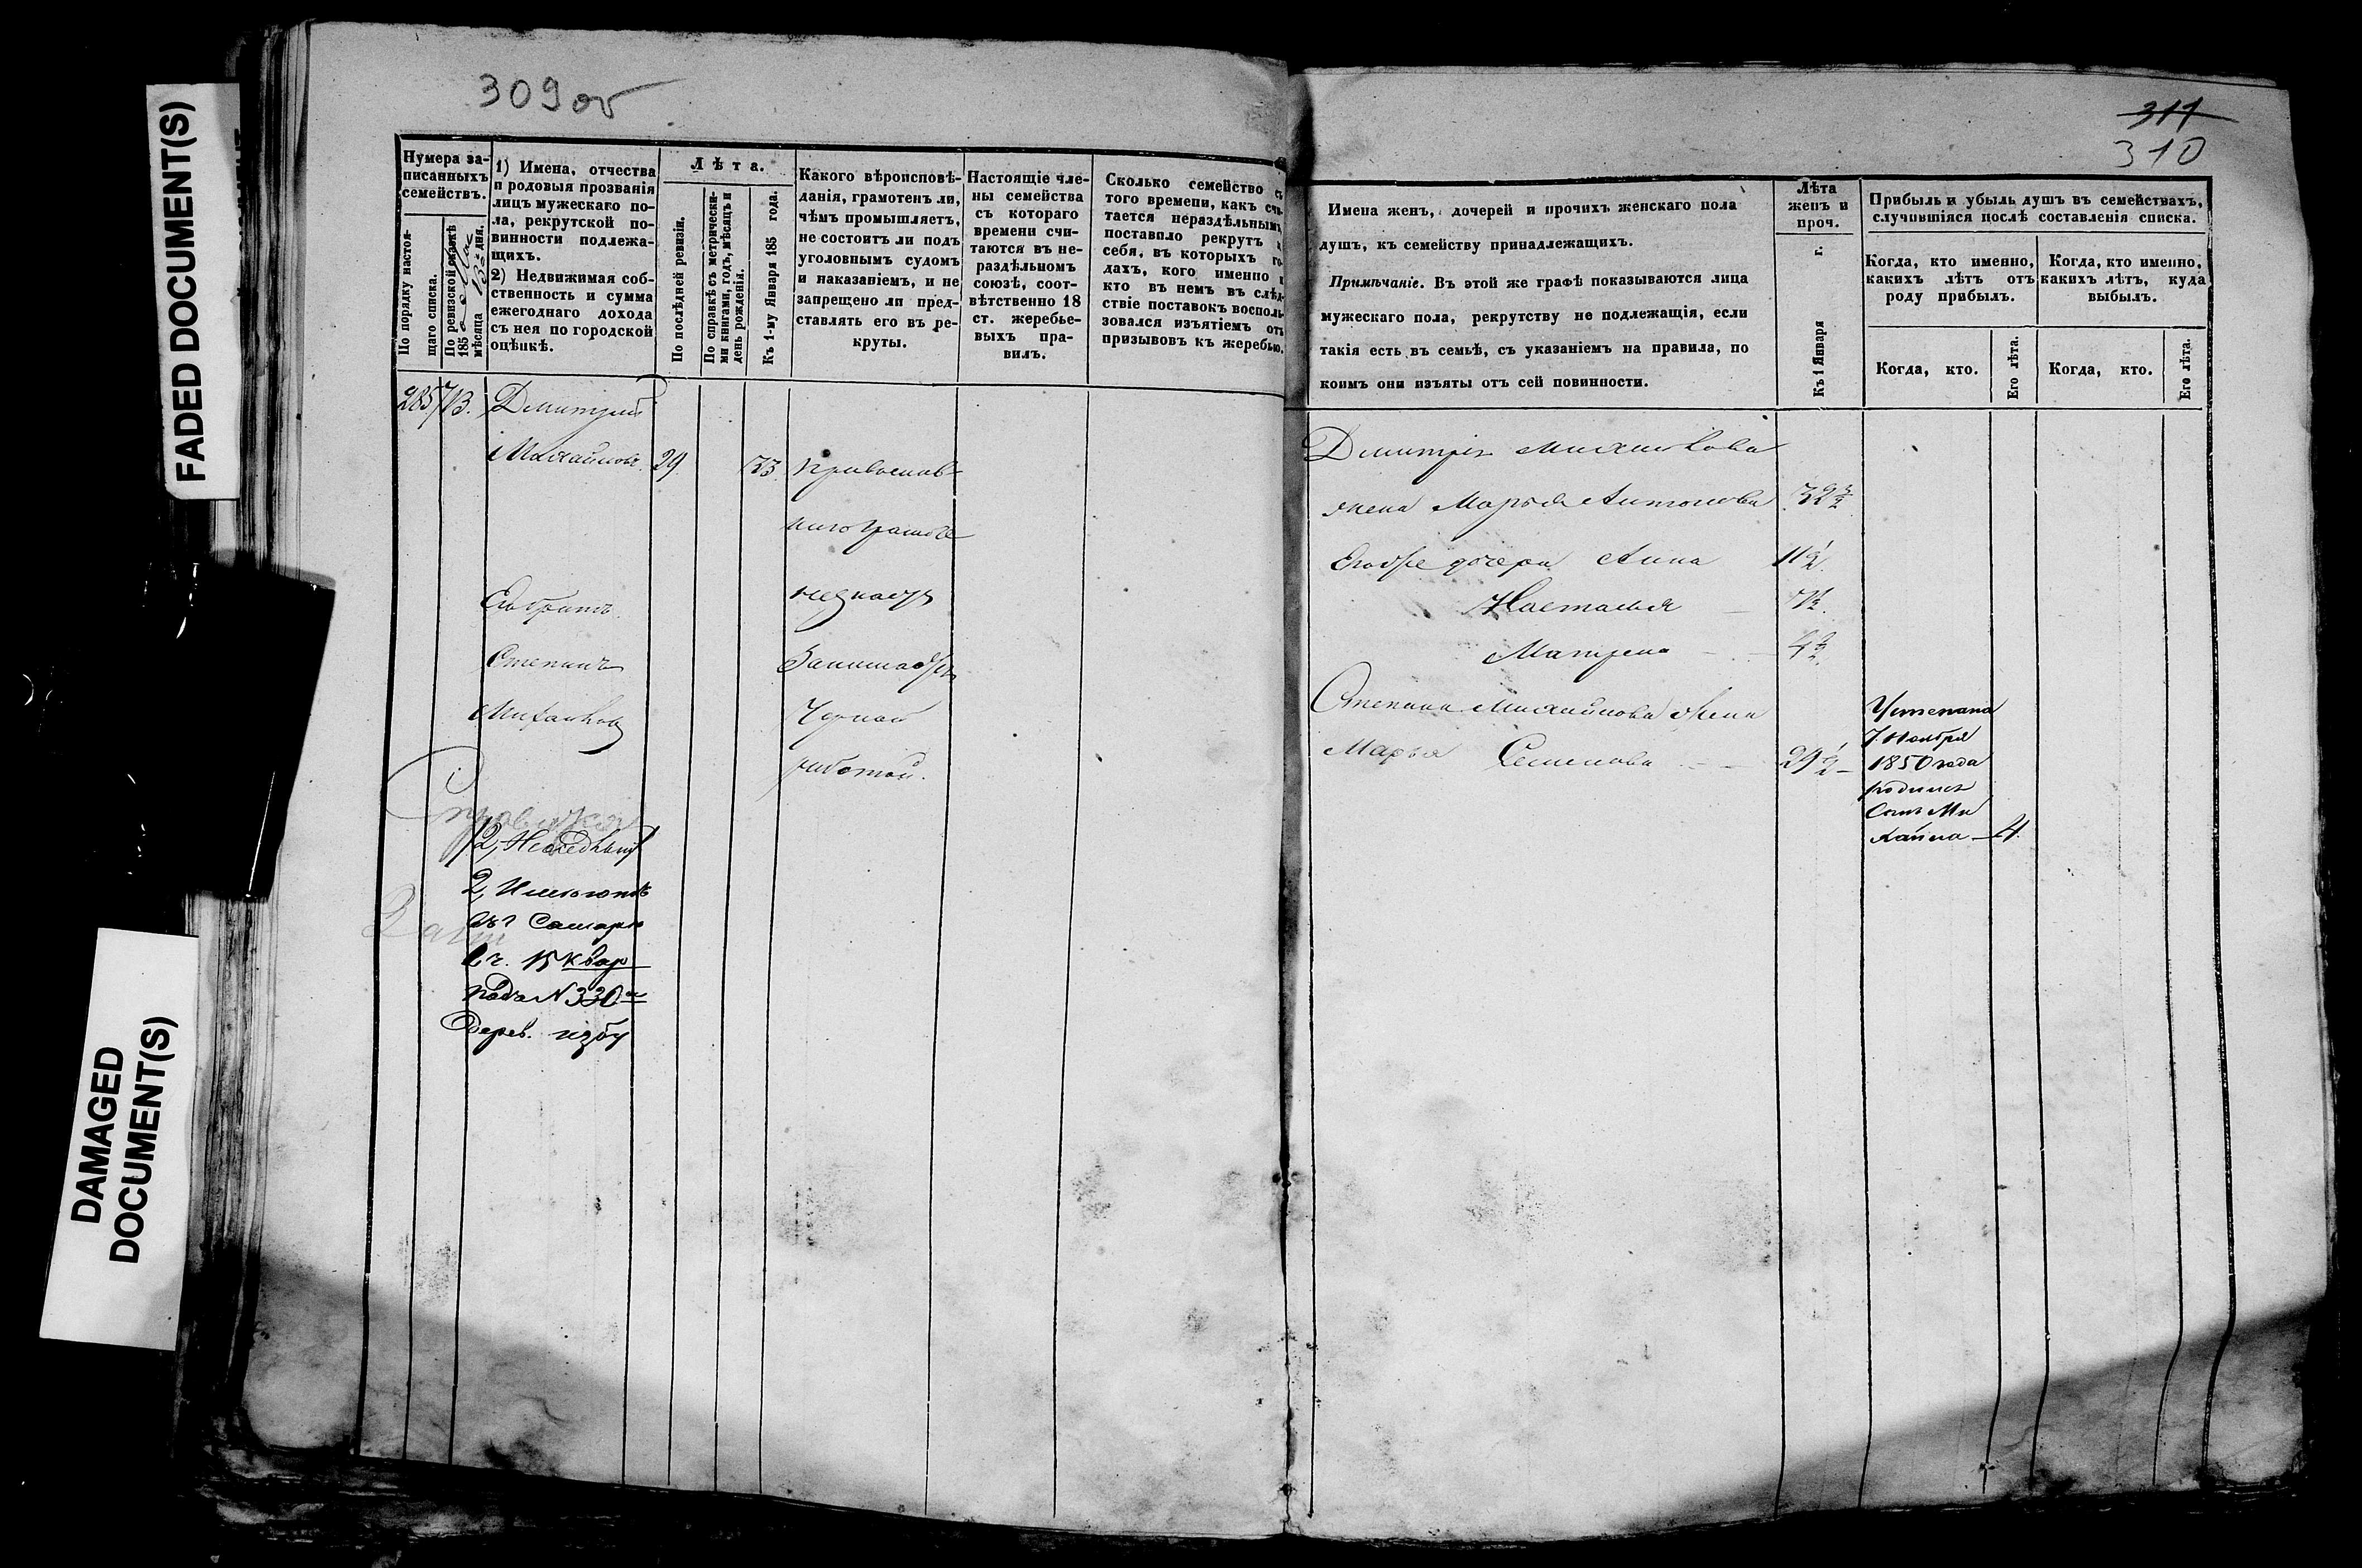 FADED DOCUMENT(S)
DAMAGED
DOCUMENT(S)
309 об
Нумера за-
писанныхъ
семействъ.
По порядку настоя-
щаго списка.
По ревизской сказкѣ
185
мѣсяца дня.
1) Имена, отчества
и родовыя прозванія
лицъ мужескаго по-
ла, рекрутской по-
винности подлежа-
щихъ.
2) Недвижимая соб-
ственность и сумма
ежегоднаго дохода
съ нея по городской
оцѣнкѣ.
Лѣта.
По послѣдней ревизіи.
По справкѣ съ метрически-
ми книгами, годъ, мѣсяцъ и
день рожденія.
Къ 1-му Января 185 года.
Какого вѣроисповѣ-
данія, грамотенъ ли,
чѣмъ промышляетъ,
не состоитъ ли подъ
уголовнымъ судомъ
и наказаніемъ, и не
запрещено ли пред-
ставлять его въ ре-
круты.
Настоящіе чле-
ны семейства
съ котораго
времени счи-
таются въ не-
раздѣльномъ
союзѣ, соот-
вѣтственно 18
ст. жеребье-
выхъ пра-
вилъ.
Сколько семейство съ
того времени, какъ счи-
тается нераздѣльнымъ,
поставило рекрутъ
себя, въ которыхъ го-
дахъ, кого именно и
кто въ немъ въ слѣд-
ствіе поставокъ восполь-
зовался изъятіемъ отъ
призывовъ къ жеребью.
285 713. Дмитрій
Михайловъ 29 33 православ
наго грамоте
Ево братъ не знаетъ
Степанъ занимается
Михайловъ черной
работой.
Справка
2, Имеютъ
въ г Самаре
2 ч. 15 квар
подъ N 330м
Дерев. избу
311
310
Имена женъ, дочерей и прочихъ женскаго пола
душъ, къ семейству принадлежащихъ.
Примѣчаніе. Въ этой же графѣ показываются лица
мужескаго пола, рекрутству не подлежащія, если
такія есть въ семьѣ, съ указаніемъ на правила, по
коимъ они изъяты отъ сей повинности.
Лѣта
женъ и
проч.
Къ 1 Января г.
Прибыль и убыль душъ въ семействахъ,
случившіяся послѣ составленія списка.
Когда, кто именно,
какихъ лѣтъ отъ
роду прибылъ.
Когда, кто именно,
какихъ лѣтъ, куда
выбылъ.
Когда, кто.
Его лѣта.
Когда, кто.
Его лѣта.
Дмитрія Михайлова
жена Марья Антонова
Евоже дочери Анна 11 1/2
Настасья
Матрена
Степана Михайлова жена
Марья Семенова 29 1/2
У Степана
7. Ноября
1850 года
родился
Сынъ Ми
хайла 4